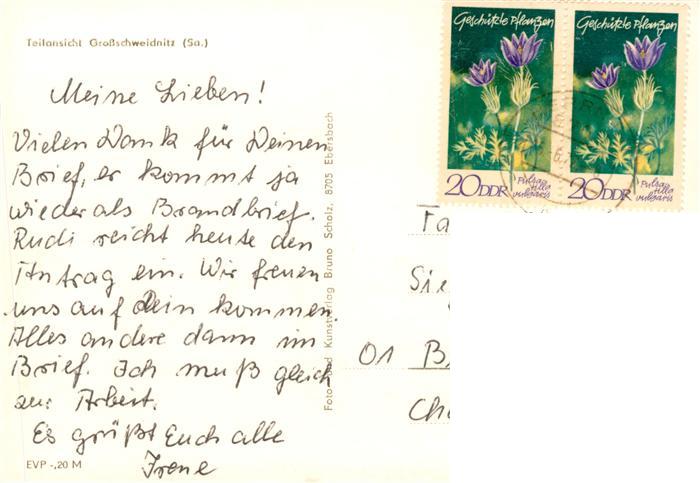 Teilansicht Großschweidnitz (Sa.)
Meine Lieben!
Vielen Dank für Deinen
Brief, er kommt ja
wieder als Brandbrief.
Rudi reicht heute den
Antrag ein. Wir freuen
uns auf Dein kommen.
Alles andere dann im
Brief. Ich muß gleich
zur Arbeit.
Es grüßt Euch alle
Irene
EVP -,20 M
Foto und Kunstverlag Bruno Scholz, 8705 Ebersbach
Geschützte Pflanzen
20 DDR
Pulsa-
tilla
vulgaris
Geschützte Pflanzen
20 DDR
Pulsa-
tilla
vulgaris
Fa
Sie
01 B
Ch